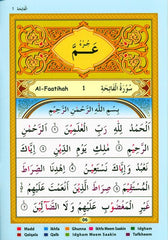 الفاتحة ١
عَمَّ
Al-Faatihah 1 سُورَةُ الْفَاتِحَةِ
بِسْمِ اللَّهِ الرَّحْمَٰنِ الرَّحِيمِ
الْحَمْدُ لِلَّهِ رَبِّ الْعَٰلَمِينَ الرَّحْمَٰنِ
الرَّحِيمِ مَٰلِكِ يَوْمِ الدِّينِ إِيَّاكَ نَعْبُدُ
وَإِيَّاكَ نَسْتَعِينُ اهْدِنَا الصِّرَاطَ
الْمُسْتَقِيمَ صِرَاطَ الَّذِينَ أَنْعَمْتَ عَلَيْهِمْ
غَيْرِ الْمَغْضُوبِ عَلَيْهِمْ وَلَا الضَّالِّينَ
Madd Ikhfa Ghunna Ikhfa Meem Saakin Idgham
Qalqala Qalb Idgham Meem Saakin Tafkheem